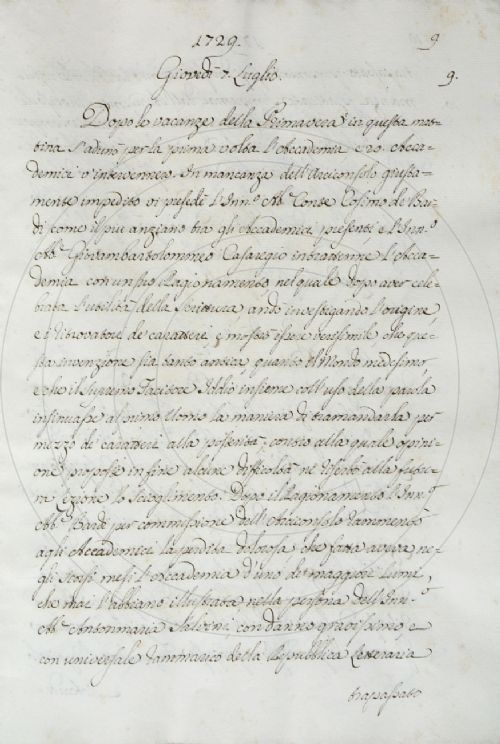 1729. 9
Giovedì 7. Luglio. 9.
Dopo le vacanze della Primavera in questa mat-
tina s'adunò per la prima volta l'Accademia e 20. Acca-
demici v'intervennero. In mancanza dell'Arciconsolo giusta-
mente impedito vi presedé l'Inn.º Ab.e Conte Cosimo de Bar-
di come il più anziano tra gli Accademici presenti, e l'Inn.º
Ab.e Giovambartolommeo Casaregio intrattenne l'Acca-
demia con un suo Ragionamento nel quale dopo aver cele-
brata l'utilità della Scrittura andò investigando l'origine,
e i ritrovatori de' caratteri, e mostrò essere verisimile che que-
sta invenzione sia tanto antica, quanto il Mondo medesimo,
e che il Supremo Facitore Iddio insieme coll'uso della parola
insinuasse al primo Uomo la maniera di tramandarla per
mezzo di caratteri alla posterità, contro alla quale opini-
one propose in fine alcune difficoltà ne riserbò alla futu-
ra Lezione lo Scioglimento. Dopo il Ragionamento l'Inn.º
Ab.e Bardi per commissione dell'Arciconsolo rammentò
agli Accademici la perdita dolorosa che fatta aveva ne-
gli scorsi mesi l'Accademia d'uno de' maggiori Lumi,
che mai l'abbiano illustrata nella persona dell'Inn.º
Ab.e Antonmaria Salvini, con danno gravissimo e
con universale rammarico della Repubblica Letteraria
trapassato